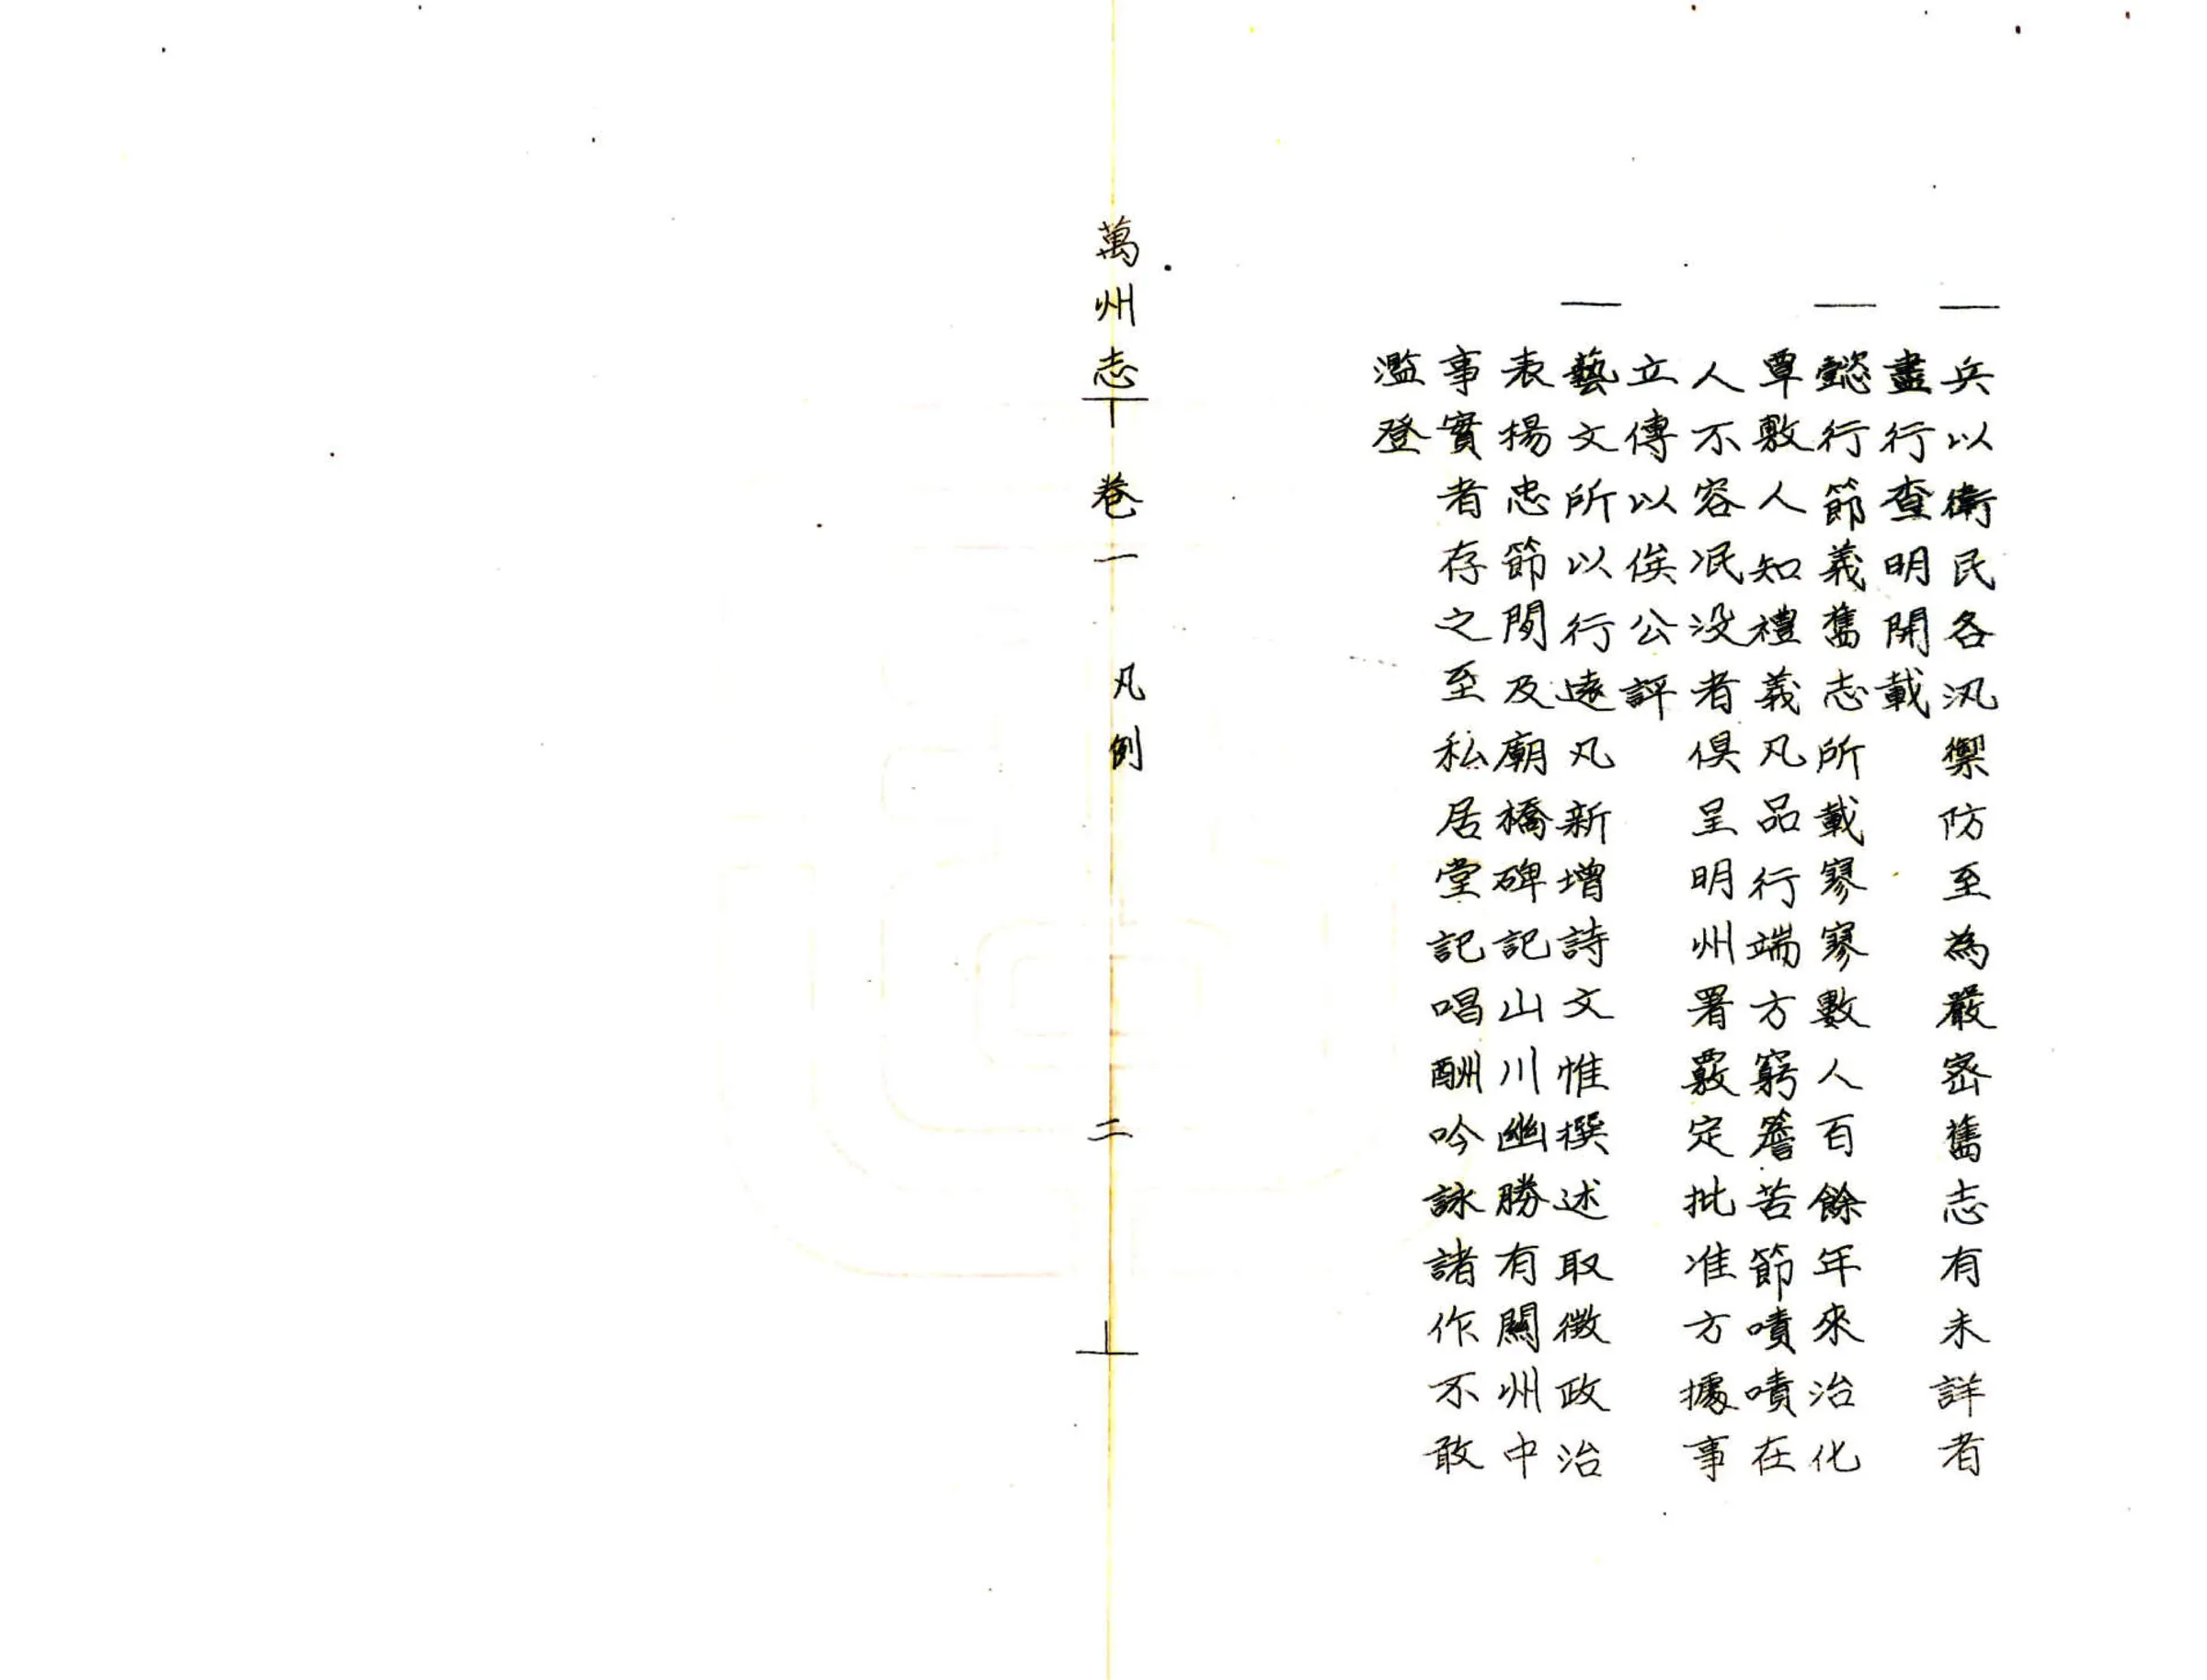 一兵以衛民各汛禦防至為嚴密舊志有未詳者
盡行查明開載
一懿行節義舊志所載寥寥數人百餘年來治化
覃敷人知禮義凡品行端方窮簷苦節嘖嘖在
人不容泯没者俱呈明州署覈定批准方據事
立傳以俟公評
一藝文所以行遠凡新增詩文惟撰述取徵政治
表揚忠節間及廟橋碑記山川幽勝有關州中
事實者存之至私居堂記唱酬吟詠諸作不敢
濫登
萬州志 卷一 凡例 二